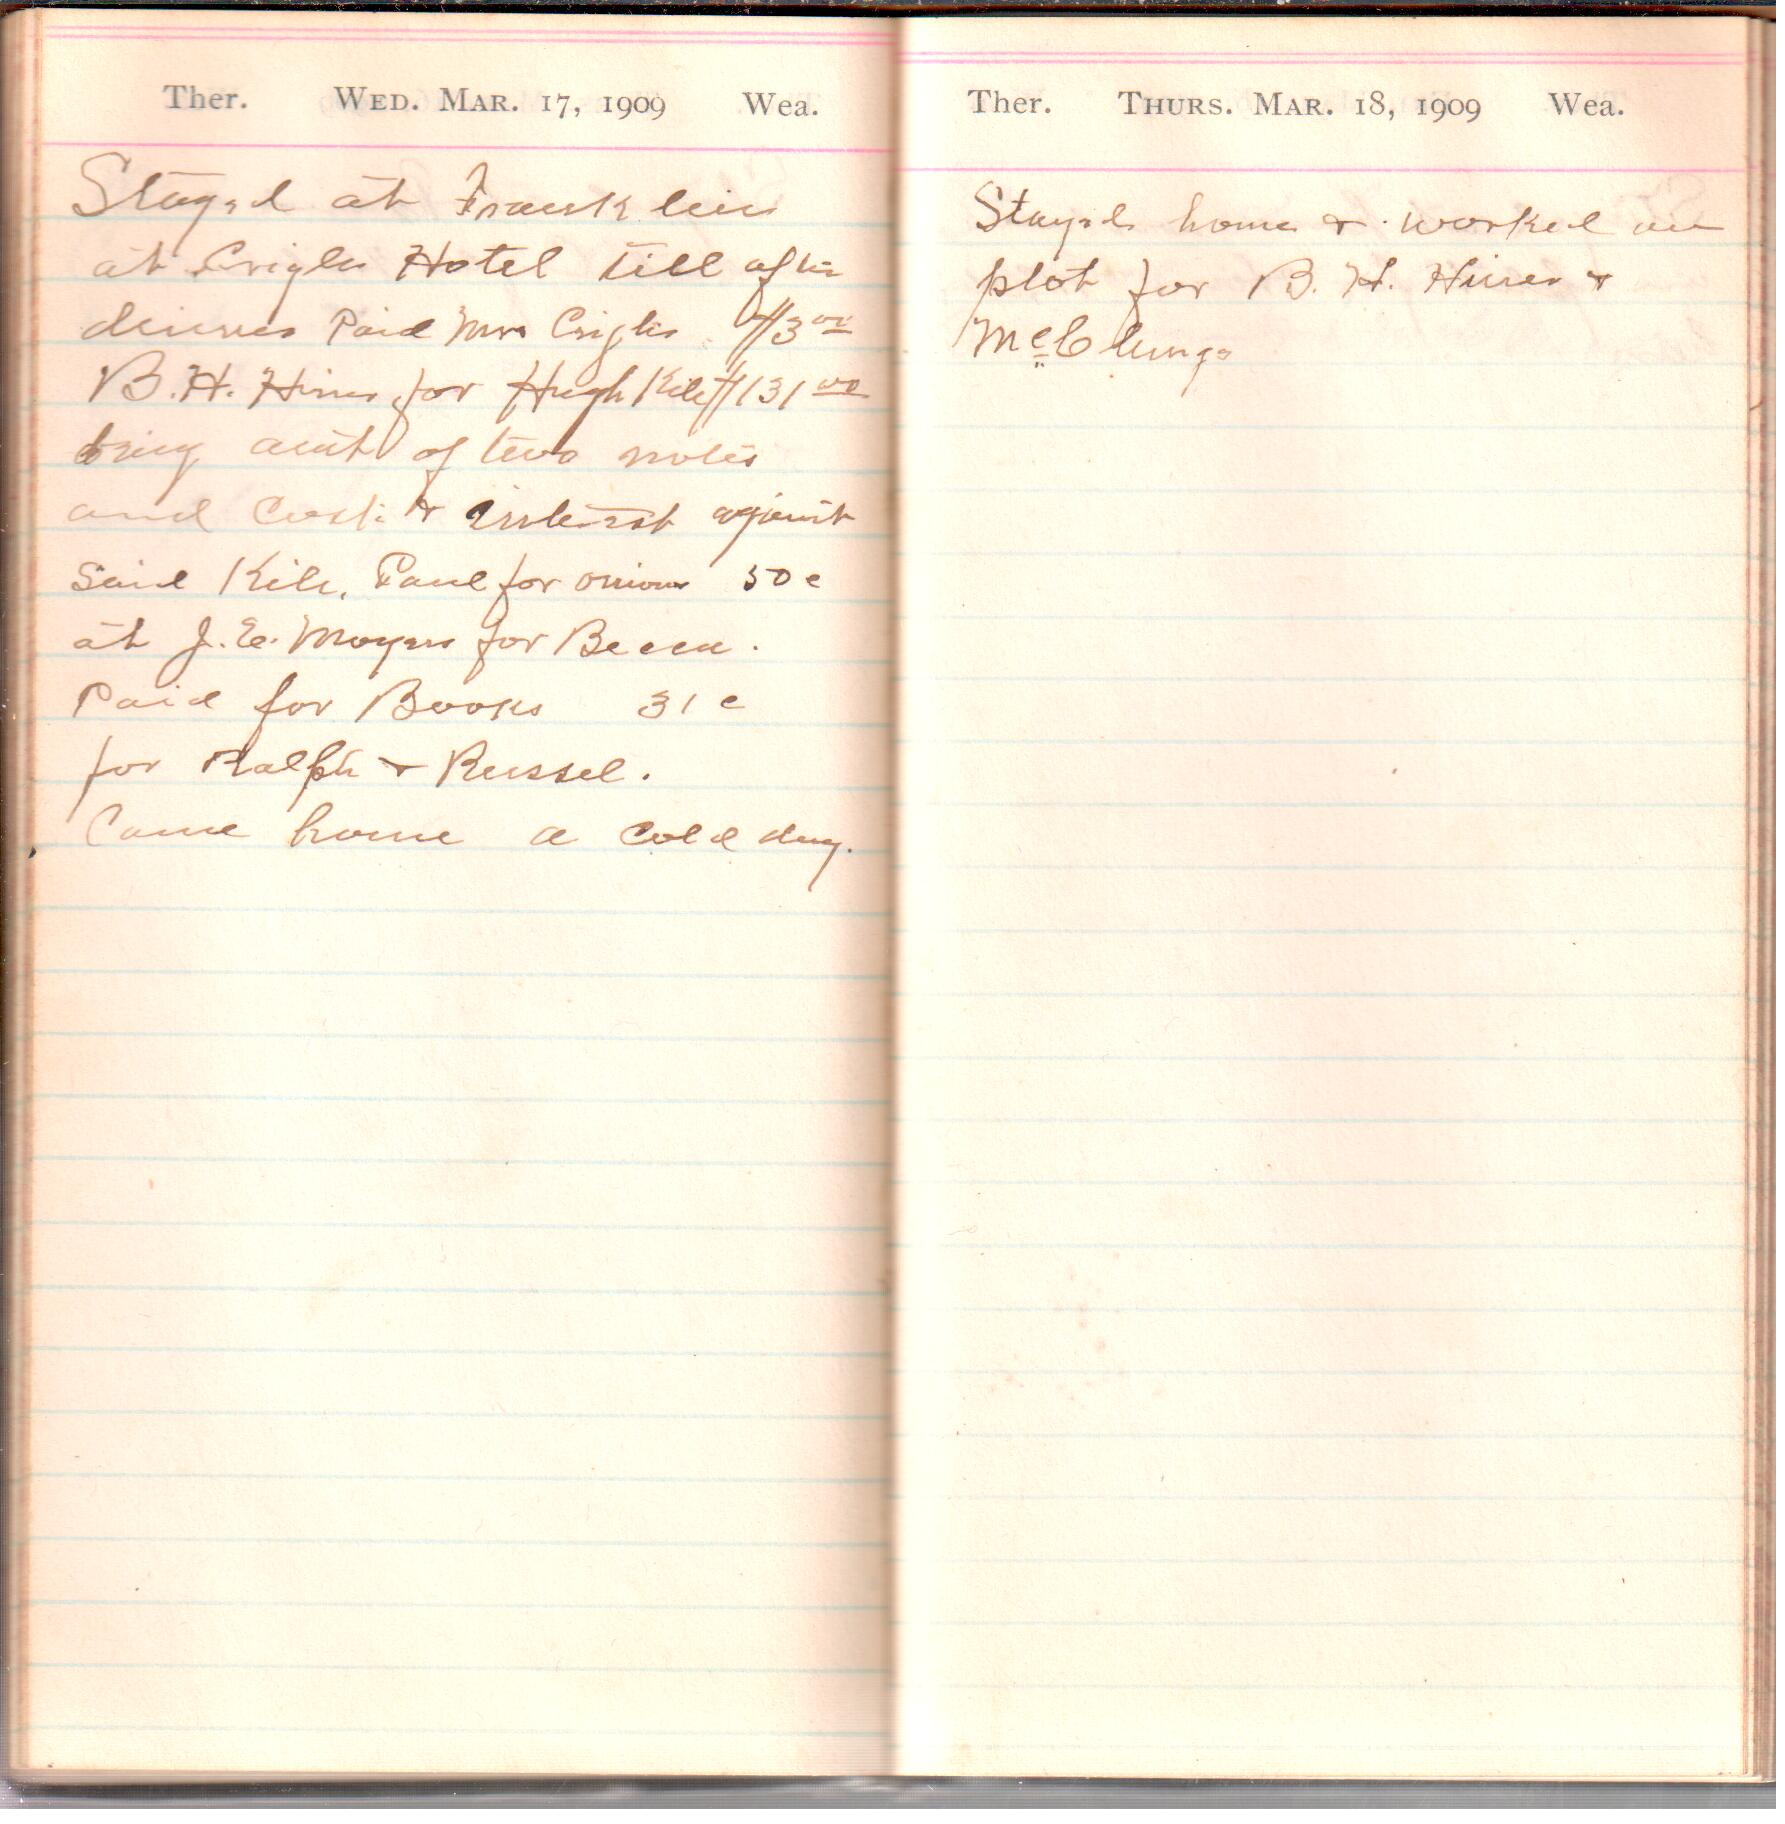 Ther. WED. MAR. 17, 1909 Wea.
Stayed at Franklin
at Crigler Hotel till after
dinner Paid Mrs Crigler $3 00
B. H. Hiner for Hugh Kile $131 00
being amt of two notes
and Cost & interest against
Said Kile. Paid for onions 50 c
at J. E. Moyers for Becca.
Paid for Books 31 c
for Ralph & Russel.
Came home a cold day.
Ther. THURS. MAR. 18, 1909 Wea.
Stayed home & worked on
plot for B. H. Hiner &
McClungs